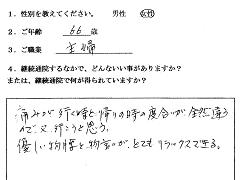 1. 性別を教えてください。 男性 女性
2. ご年齢 66 歳
3. ご職業 主婦
4. 継続通院するなかで、どんないい事がありますか?
または、継続通院で何が得られていますか?
痛みが行く時と帰りの時の度合いが全然違う
ので又、行こうと思う。
優しい物腰と物言いが、とてもリラックスできる。